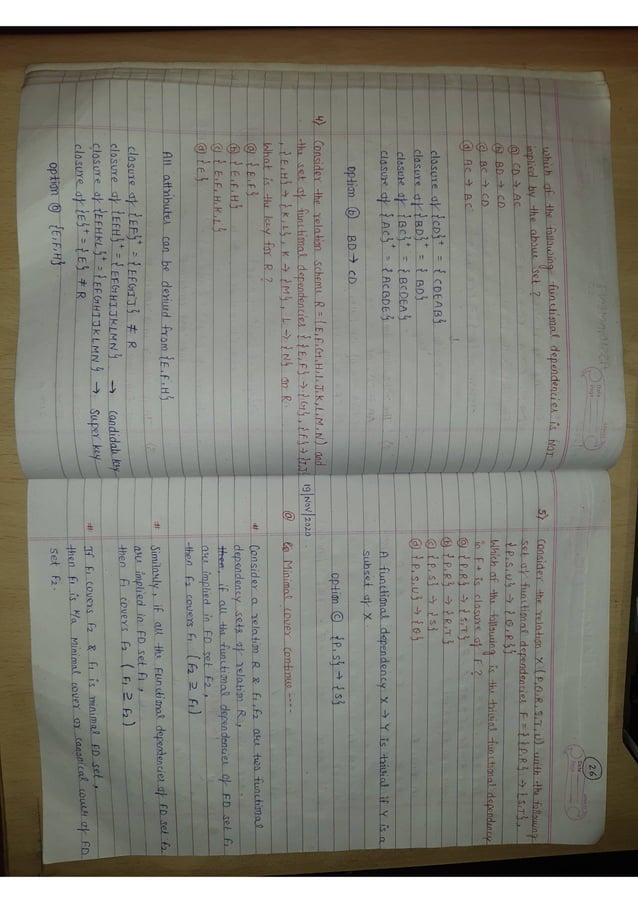 Which of the following functional dependencies is NOT
implied by the above set?
ⓐ CD → AC
ⓑ BD → CD
ⓒ BC → CD
ⓓ AC → BC
closure of {CD}⁺ = {CDEAB}
closure of {BD}⁺ = {BD}
closure of {BC}⁺ = {BCDEA}
closure of {AC}⁺ = {ACBDE}
option ⓑ BD → CD
4) Consider the relation scheme R = {E,F,G,H,I,J,K,L,M,N} and
the set of functional dependencies {{E,F} → {G}, {F} → {I,J}
, {E,H} → {K,L}, K → {M}, L → {N} on R.
What is the key for R?
ⓐ {E,F}
ⓑ {E,F,H}
ⓒ {E,F,H,K,L}
ⓓ {E}
All attributes can be derived from {E,F,H}
closure of {EF}⁺ = {EFGIJ} ≠ R
closure of {EFH}⁺ = {EFGHIJKLMN} → Candidate key
closure of {EFHKL}⁺ = {EFGHIJKLMN} → Super key
closure of {E}⁺ = {E} ≠ R
option ⓑ {E,F,H}
26
5) Consider the relation X (P,Q,R,S,T,U) with the following
set of functional dependencies F = {{P,R} → {S,T},
{P,S,U} → {Q,R}}
Which of the following is the trivial functional dependency
in F+ is closure of F?
ⓐ {P,R} → {S,T}
ⓑ {P,R} → {R,T}
ⓒ {P,S} → {S}
ⓓ {P,S,U} → {Q}
A functional dependency X → Y is trivial if Y is a
subset of X
option ⓒ {P,S} → {S}
19/NOV/2020
@ Minimal cover continue ----
# Consider a relation R & F1, F2 are two functional
dependency sets of relation R,
then, if all the functional dependencies of FD set F1
are implied in FD set F2,
then F2 covers F1 (F2 ⊇ F1)
# Similarly, if all the Functional dependencies of FD set F2
are implied in FD set F1,
then F1 covers F2 (F1 ⊇ F2)
# If F1 covers F2 & F1 is minimal FD set,
then F1 is k/a Minimal cover or canonical cover of FD
set F2.